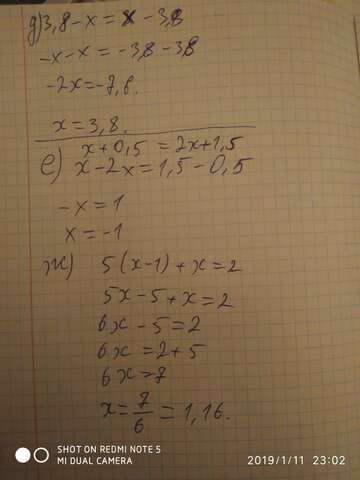 д) 3,8-x = x - 3,8
-x-x = -3,8-3,8
-2x=-7,6.
x=3,8.
x+0,5 = 2x+1,5
е) x-2x=1,5-0,5
-x=1
x=-1
ж) 5(x-1)+x=2
5x-5+x=2
6x-5=2
6x=2+5
6x=7
x=7/6=1,16.
SHOT ON REDMI NOTE 5
MI DUAL CAMERA
2019/1/11 23:02